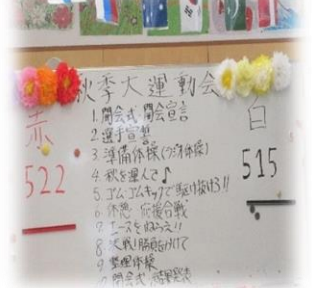 秋季大運動会
赤
522
白
515
1. 開会式・開会宣言
2. 選手宣誓
3. 準備体操(ラジオ体操)
4. 秋を運んで♪
5. ゴムゴムキップで駆け抜けろ!!
6. 休憩 応援合戦
7. エースをねらえ!!
8. 決戦!勝負をかけて
9. 整理体操
閉会式 結果発表